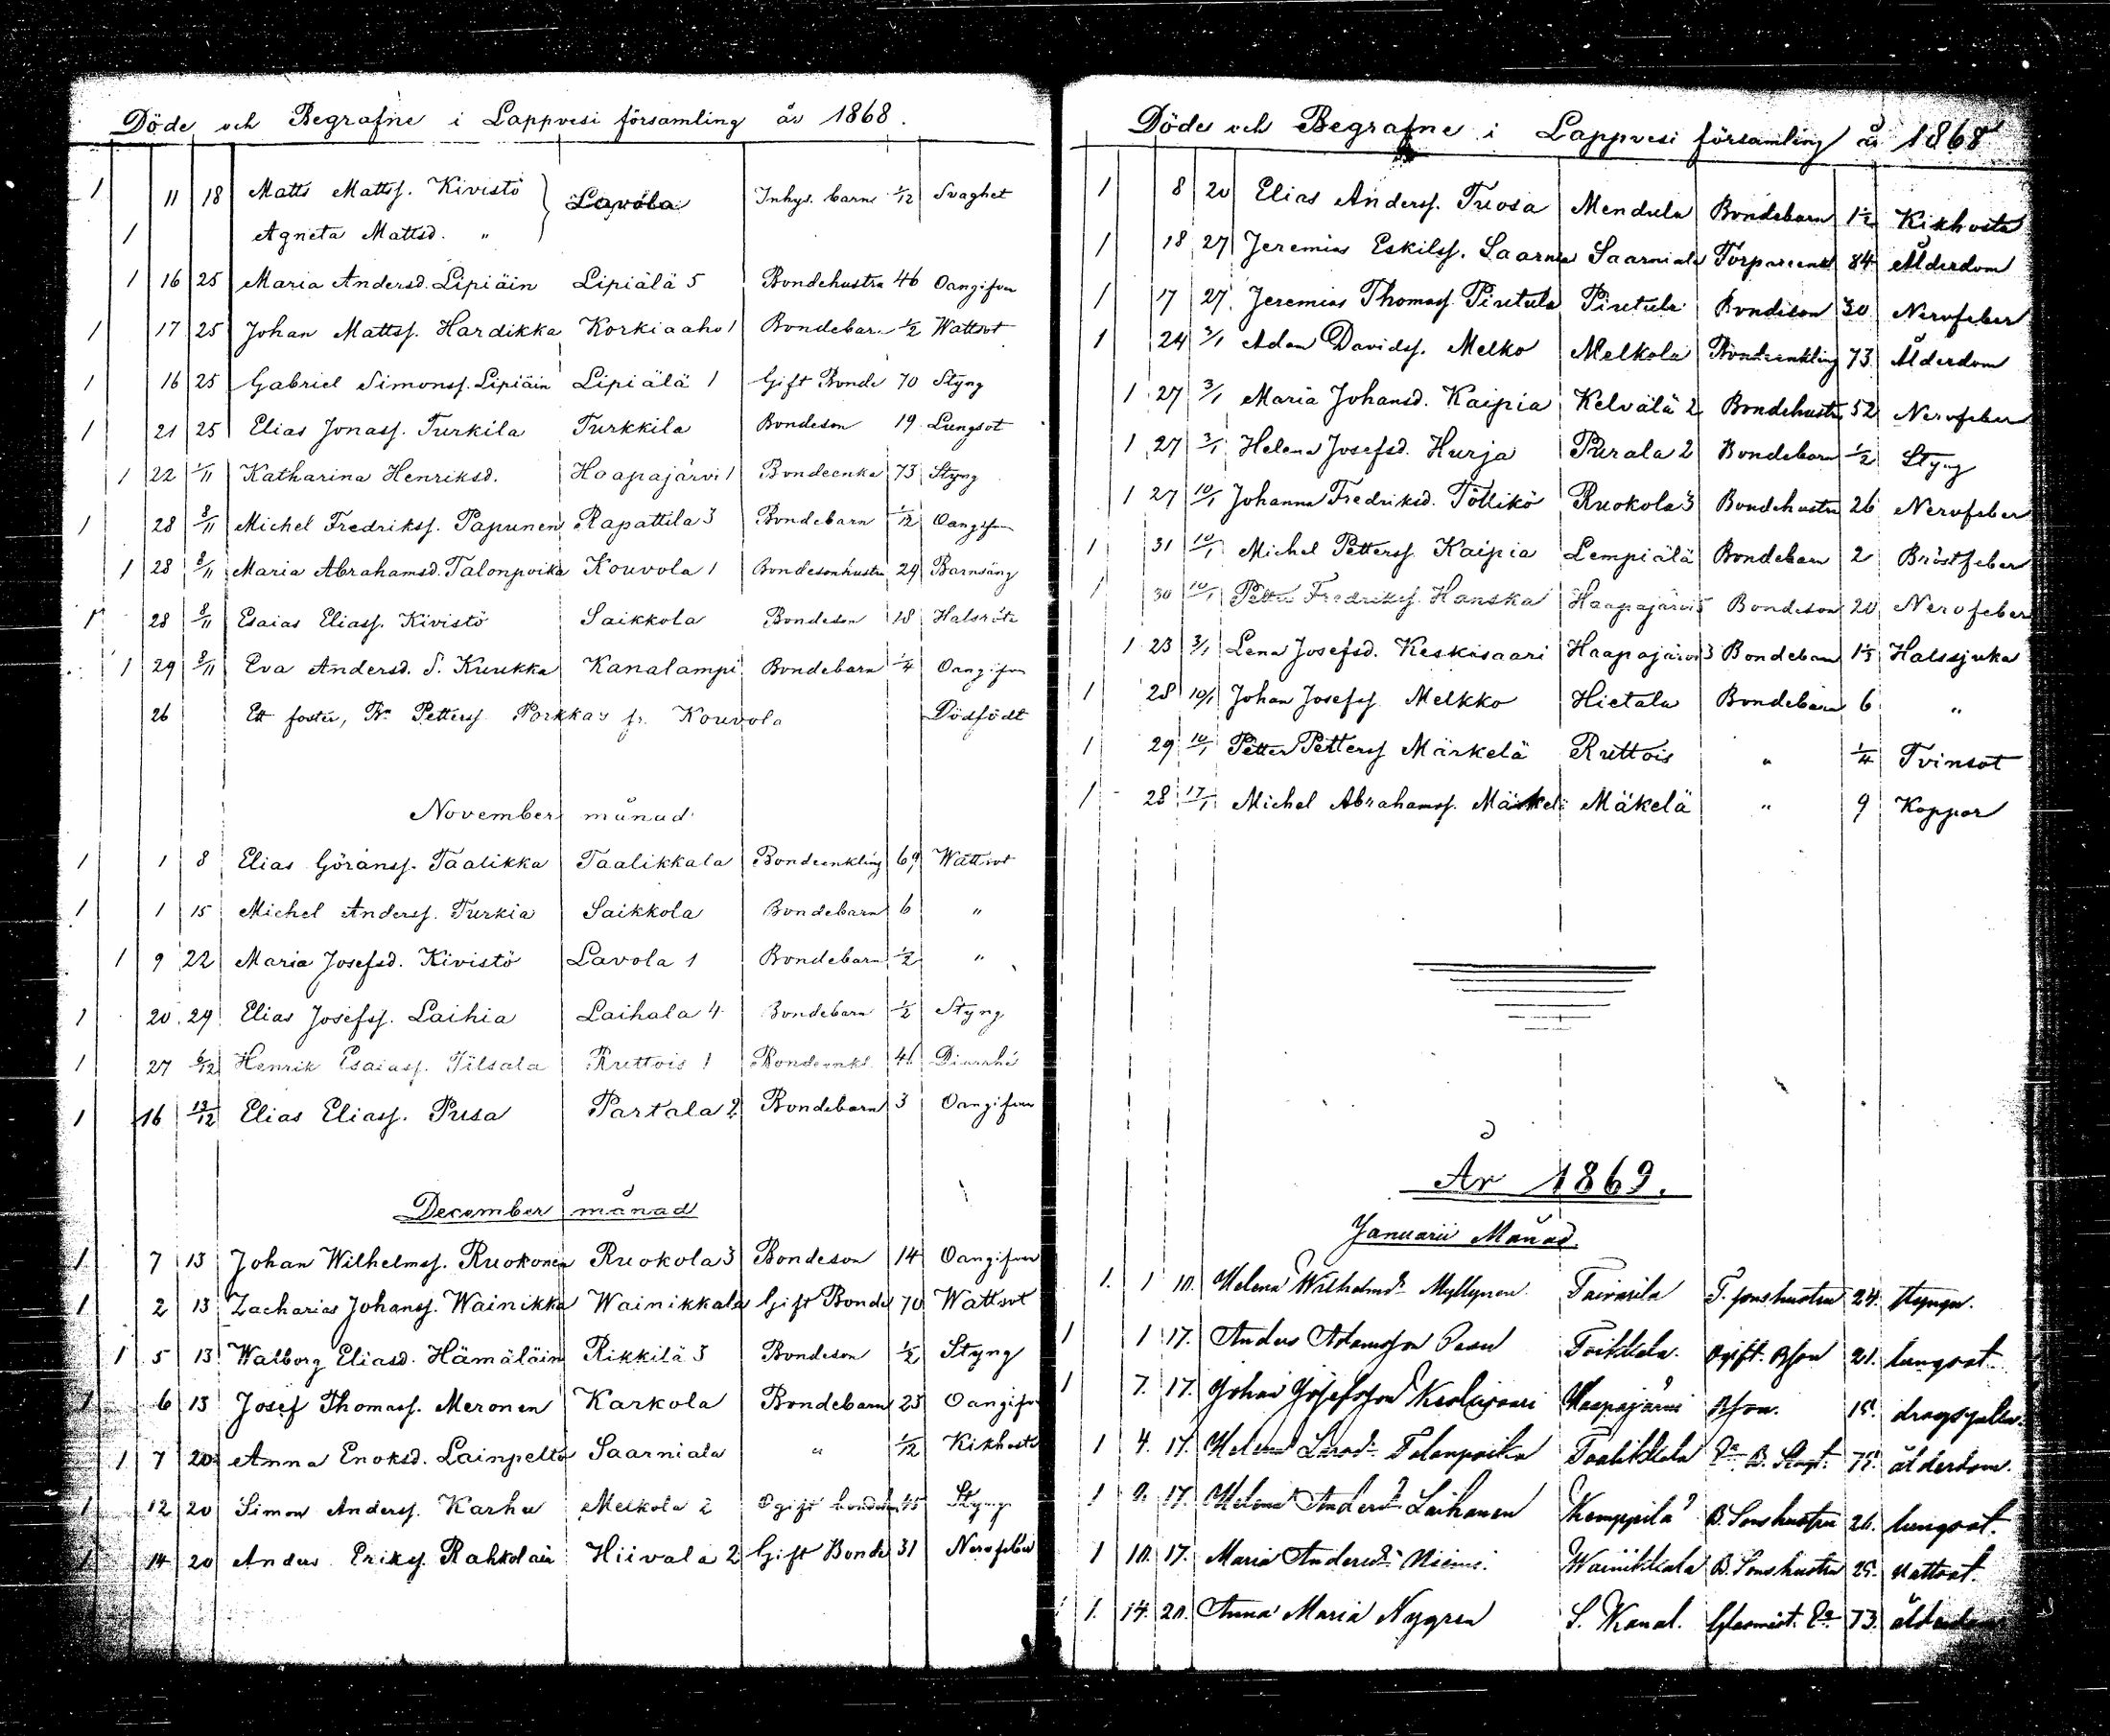 Döde och Begrafne i Lappvesi församling år 1868.
1 11 18 Matts Mattss. Kivistö Lavola Inhys. barn 1/12 Svaghet
1 Agneta Mattsd. "
1 16 25 Maria Andersd. Lipiäin Lipiälä 5 Bondehustru 46 Oangifven
1 17 25 Johan Mattss. Hardikka Korkiaaho 1 Bondebarn 1/2 Wattsot
1 16 25 Gabriel Simonss. Lipiäin Lipiälä 1 Gift Bonde 70 Styng
1 21 25 Elias Jonass. Turkila Turkkila Bondeson 19 Lungsot
1 22 1/11 Katharina Henriksd. Haapajärvi 1 Bondeenka 73 Styng
1 28 8/11 Michel Fredrikss. Papunen Rapattila 3 Bondebarn 1/12 Oangifven
1 28 8/11 Maria Abrahamsd. Talonpoika Kouvola 1 Bondesonhustru 24 Barnsäng
1 28 8/11 Esaias Eliass. Kivistö Saikkola Bondeson 18 Halsröta
1 29 8/11 Eva Andersd. S. Kuukka Kanalampi Bondebarn 1/4 Oangifven
26 Ett foster, Bn Petterss Porkkas fr. Kouvola Dödfödt
November månad
1 1 8 Elias Göranss. Taalikka Taalikkala Bondeenkling 69 Wattsot
1 1 15 Michel Anderss. Turkia Saikkola Bondebarn 6 "
1 9 22 Maria Josefsd. Kivistö Lavola 1 Bondebarn 1/2 "
1 20 29 Elias Josefss. Laihia Laihala 4 Bondebarn 1/2 Styng
1 27 6/12 Henrik Esaiass. Tilsala Ruttois 1 Bondeenkl. 46 Diarrhé
1 16 13/12 Elias Eliass. Pusa Partala 2 Bondebarn 3 Oangifven
December månad
1 7 13 Johan Wilhelmss. Ruokonen Ruokola 3 Bondeson 14 Oangifven
1 2 13 Zacharias Johanss. Wainikka Wainikkala Gift Bonde 70 Wattsot
1 5 13 Walborg Eliasd. Hämäläin Rikkilä 3 Bondeson 1/2 Styng
1 6 13 Josef Thomass. Meronen Karkola Bondebarn 23 Oangifven
1 7 20 Anna Enoksd. Lainpelto Saarniala " 1/12 Kikhosta
1 12 20 Simon Anderss. Karhu Melkola 2 Ogift 45 Styng
1 14 20 Anders Erikss. Rahkolain Hiivala 2 Gift Bonde 31 Nervfeber
Döde och Begrafne i Lappvesi församling år 1868
1 8 20 Elias Anderss. Tuosa Mendula Bondebarn 1 1/2 Kikhosta
1 18 27 Jeremias Eskilss. Saarnia Saarniala Torpareenkl 84 Ålderdom
1 17 27 Jeremias Thomass. Piutula Piutula Bondeson 30 Nervfeber
1 24 3/1 Adam Davidss. Melko Melkola Bondeenkling 73 Ålderdom
1 27 3/1 Maria Johansd. Kaipia Kelvälä 2 Bondehustru 52 Nervfeber
1 27 3/1 Helena Josefsd. Hurja Purala 2 Bondebarn 1/2 Styng
1 27 10/1 Johanna Fredriksd. Töllikö Ruokola 3 Bondehustru 26 Nervfeber
1 31 10/1 Michel Petterss. Kaipia Lempiälä Bondebarn 2 Bröstfeber
1 30 10/1 Petter Fredrikss. Hanska Haapajärvi 5 Bondeson 20 Nervfeber
1 23 3/1 Lena Josefsd. Keskisaari Haapajärvi 3 Bondebarn 1 1/3 Halssjuka
1 28 10/1 Johan Josefss Melkko Hietala Bondebarn 6 "
1 29 10/1 Petter Petterss Märkelä Ruttois " 1/4 Tvinsot
1 28 17/1 Michel Abrahamss. Mäkelä Mäkelä " 9 Koppor
År 1869.
Januarii Månad.
1. 1 10. Helena Wilhelmsdr Myllynen. Toivarila T. sonshustru 24. Styngn.
1 1 17. Anders Adamsson Toikkala. Ogift. Bson 21. lungsot
1 7. 17. Johan Josefsson Keskisaari Haapajärvi Bson. 15.
1 4. 17. Helena Talonpoika Taalikkala 75. ålderdom.
1 9. 17. Helena Andersdr Laihanen Kemppilä B. Sonshustru 26. lungsot.
1 10. 17. Maria Andersdr Niemi. Wainikkala B. Sonshustru 25. Wattsot.
1. 14. 20. Anna Maria Nygren S. Kanal. Glasmäst. Ea 73. ålderdom